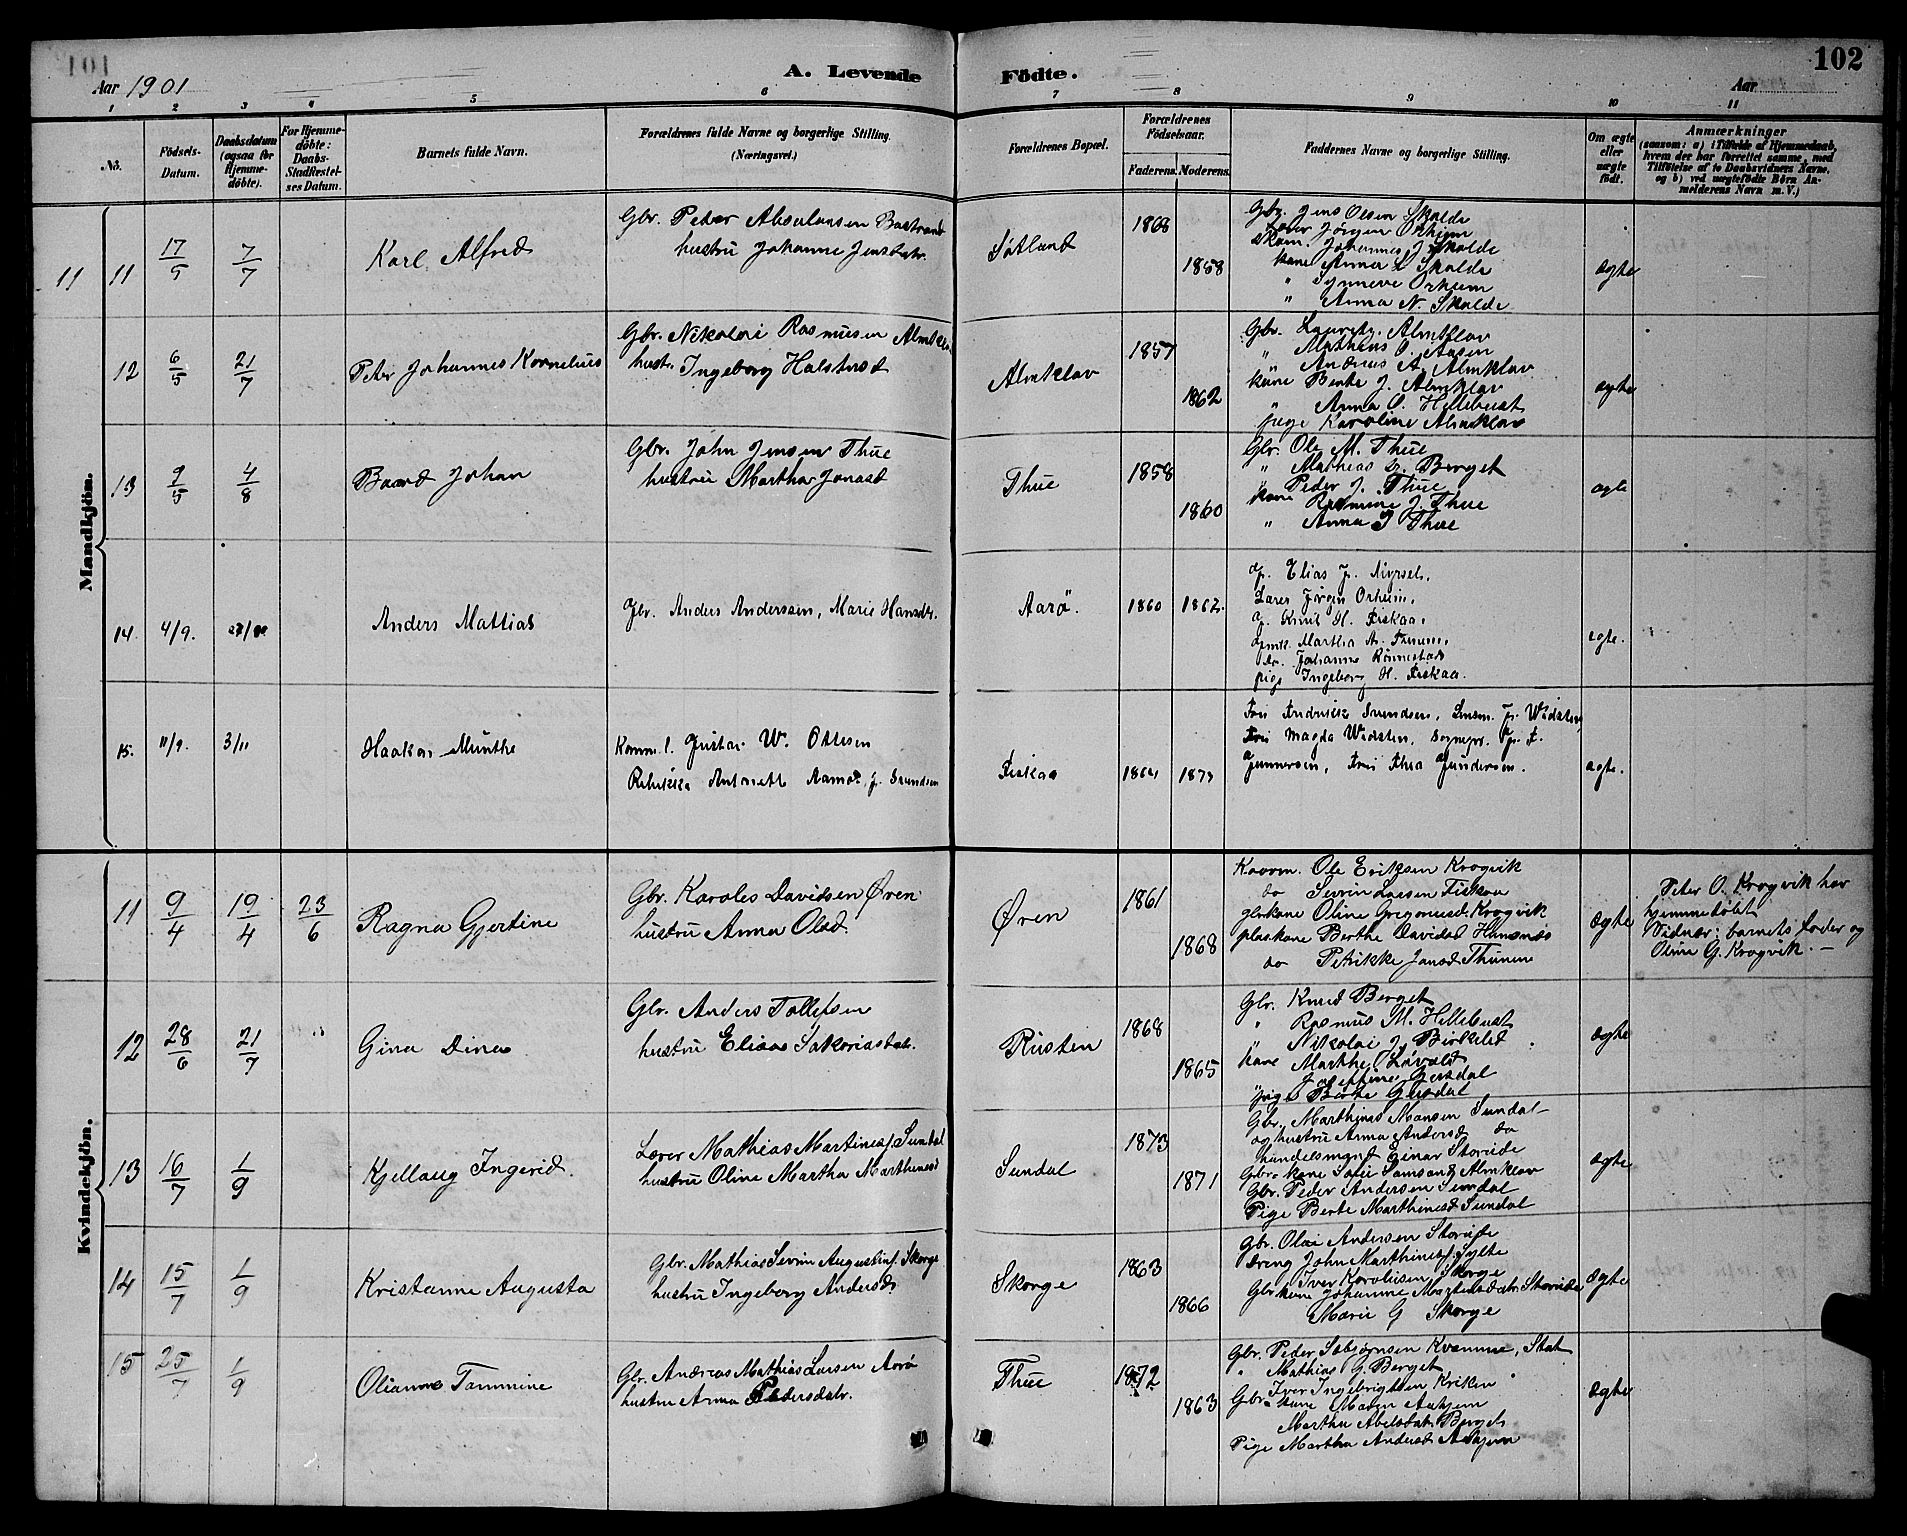 101
102
A. Levende
Födte.
Aar 1901
Aar
1 2 3 4 5 6 7 8 9 10 11
No.
Födsels-
Datum.
Daabsdatum
(ogsaa for
Hjemme-
döbte).
For Hjemme-
döbte:
Daabs-
Stadfestel-
ses Datum.
Barnets fulde Navn.
Forældrenes fulde Navne og borgerlige Stilling.
(Næringsvei.)
Forældrenes Bopæl.
Forældrenes
Födselsaar.
Faderens. Moderens.
Faddernes Navne og borgerlige Stilling.
Om ægte
eller
uægte
født.
Anmærkninger
(saasom: a) i Tilfælde af Hjemmedaab,
hvem der har forrettet samme, med
Tilføielse af to Daabsvidners Navne,
og b) ved uægtefødte Børn An-
melderens Navn m. V.)
Mandkjön.
11 11 17/5 7/7 Karl Alfred
Gbr. Peter Absalonsen Bastrand
hustru Johanne Jensdatr.
Søtland 1868 1858
Gbr. Jens Olsen Skolde
Lærer Jørgen Orheim
Skom. Johannes J Skolde
kone Anna L Skolde
" Synneve Orheim
" Anna N. Skolde
ægte
12 6/5 21/7 Peter Johannes Kornelius
Gbr. Nikolai Rasmusen Almklov
hust. Ingeborg Halstensd
Almklov 1857 1862
Gbr. Almklov
" Mathias O. Aasen
" Andreas A. Almklov
kone Berte J. Almklov
" Anna O. Hellebust
pige Karoline Almklov
ægte
13 9/5 4/8 Baard Johan
Gbr. John Jensen Thue
hustru Martha Jonasd
Thue 1858 1860
Gbr. Ole M. Thue
" Mathias G. Berget
" Peder J. Thue
kone Rasmine J. Thue
" Anna J Thue
ægte
14. 4/9. Anders Mattias
Gbr. Anders Anderssen, Marie Hansdr.
Aarö. 1860 1862.
G. Elias J. Myrseth,
Lærer Jörgen Orheim,
G. Knut H. Fiskaa,
Gmk. Martha A. Thunem,
do. Johanne Rönnestad
pige Ingeborg H. Fiskaa.
ægte.
15. 11/9. 3/11 Haakon Munthe
Komm. l. Gustav W. Ottesen
Rebekka Antonett Aamot f. Svendsen
Fiskaa 1864 1873
Frk. Fredrikke Svendsen, Lensm. Jr. Widsten,
Fru Magda Widsten, Sognepr. Gr. F.
Gunnersen, Fru Thea Gundersen.
ægte.
Kvindekjön.
11 9/4 19/4 23/6 Ragna Gjertine
Gbr. Karoles Davidsen Øren
hustru Anna Olsd.
Øren 1861 1868
Kaarm. Ole Eriksen Krogvik
do Sevrin Larsen Fiskaa
gbrkone Oline Gregoriusd. Krogvik
plaskone Berthe Davidsd Hansnæs
do Petrikke Jansd Thunem
ægte
Peter O. Krogvik har
hjemmedøbt
Vidner: barnets fader og
Oline G. Krogvik. —
12 28/6 21/7 Gina Dina
Gbr. Anders Tollefsen
hustru Elias Sakariasdatr.
Rusten 1868 1865
Gbr. Knud Berget
" Rasmus M. Hellebust
" Nikolai J. Birkeled
kone Marthe Løvold
" Josefine Gjerdal
pige Berte Gjerdal
ægte
13 16/7 1/9 Kjellaug Ingerid
Lærer Mathias Martines. Sundal
hustru Oline Martha Marthinesd
Sundal 1873 1871
Gbr. Marthines Monsen Sundal
og hustru Anna Andersd do
handelsmand Einar Storeide
Gbr. kone Sofie Samsond Almklov
Gbr. Peder Andersen Sundal
Pige Berte Marthinesd Sundal
ægte
14 15/7 1/9 Kristanne Augusta
Gbr. Mathias Sevrin Augustinf. Skorge
hustru Ingeborg Andersd
Skorge 1863 1866
Gbr. Olai Andersen Storeide
dreng John Marthines. Sylte
Gbr. Iver Karolusen Skorge
Gbr kone Johanne Martinsdatr Storeide
Marie G Skorge
ægte
15 25/7 1/9 Olianne Tommine
Gbr. Andreas Mathias Larsen Aarø
hustru Anna Pedersdatr.
Thue 1872 1863
Gbr. Peder Sabjørnsen Kvamme, Stat
" Mathias G. Berget
Gbr. Iver Ingebrigtsen Kriken
" kone Maren Aahjem
Martha Abelsdatr. Berget
Pige Martha Andersd Aahjem
ægte